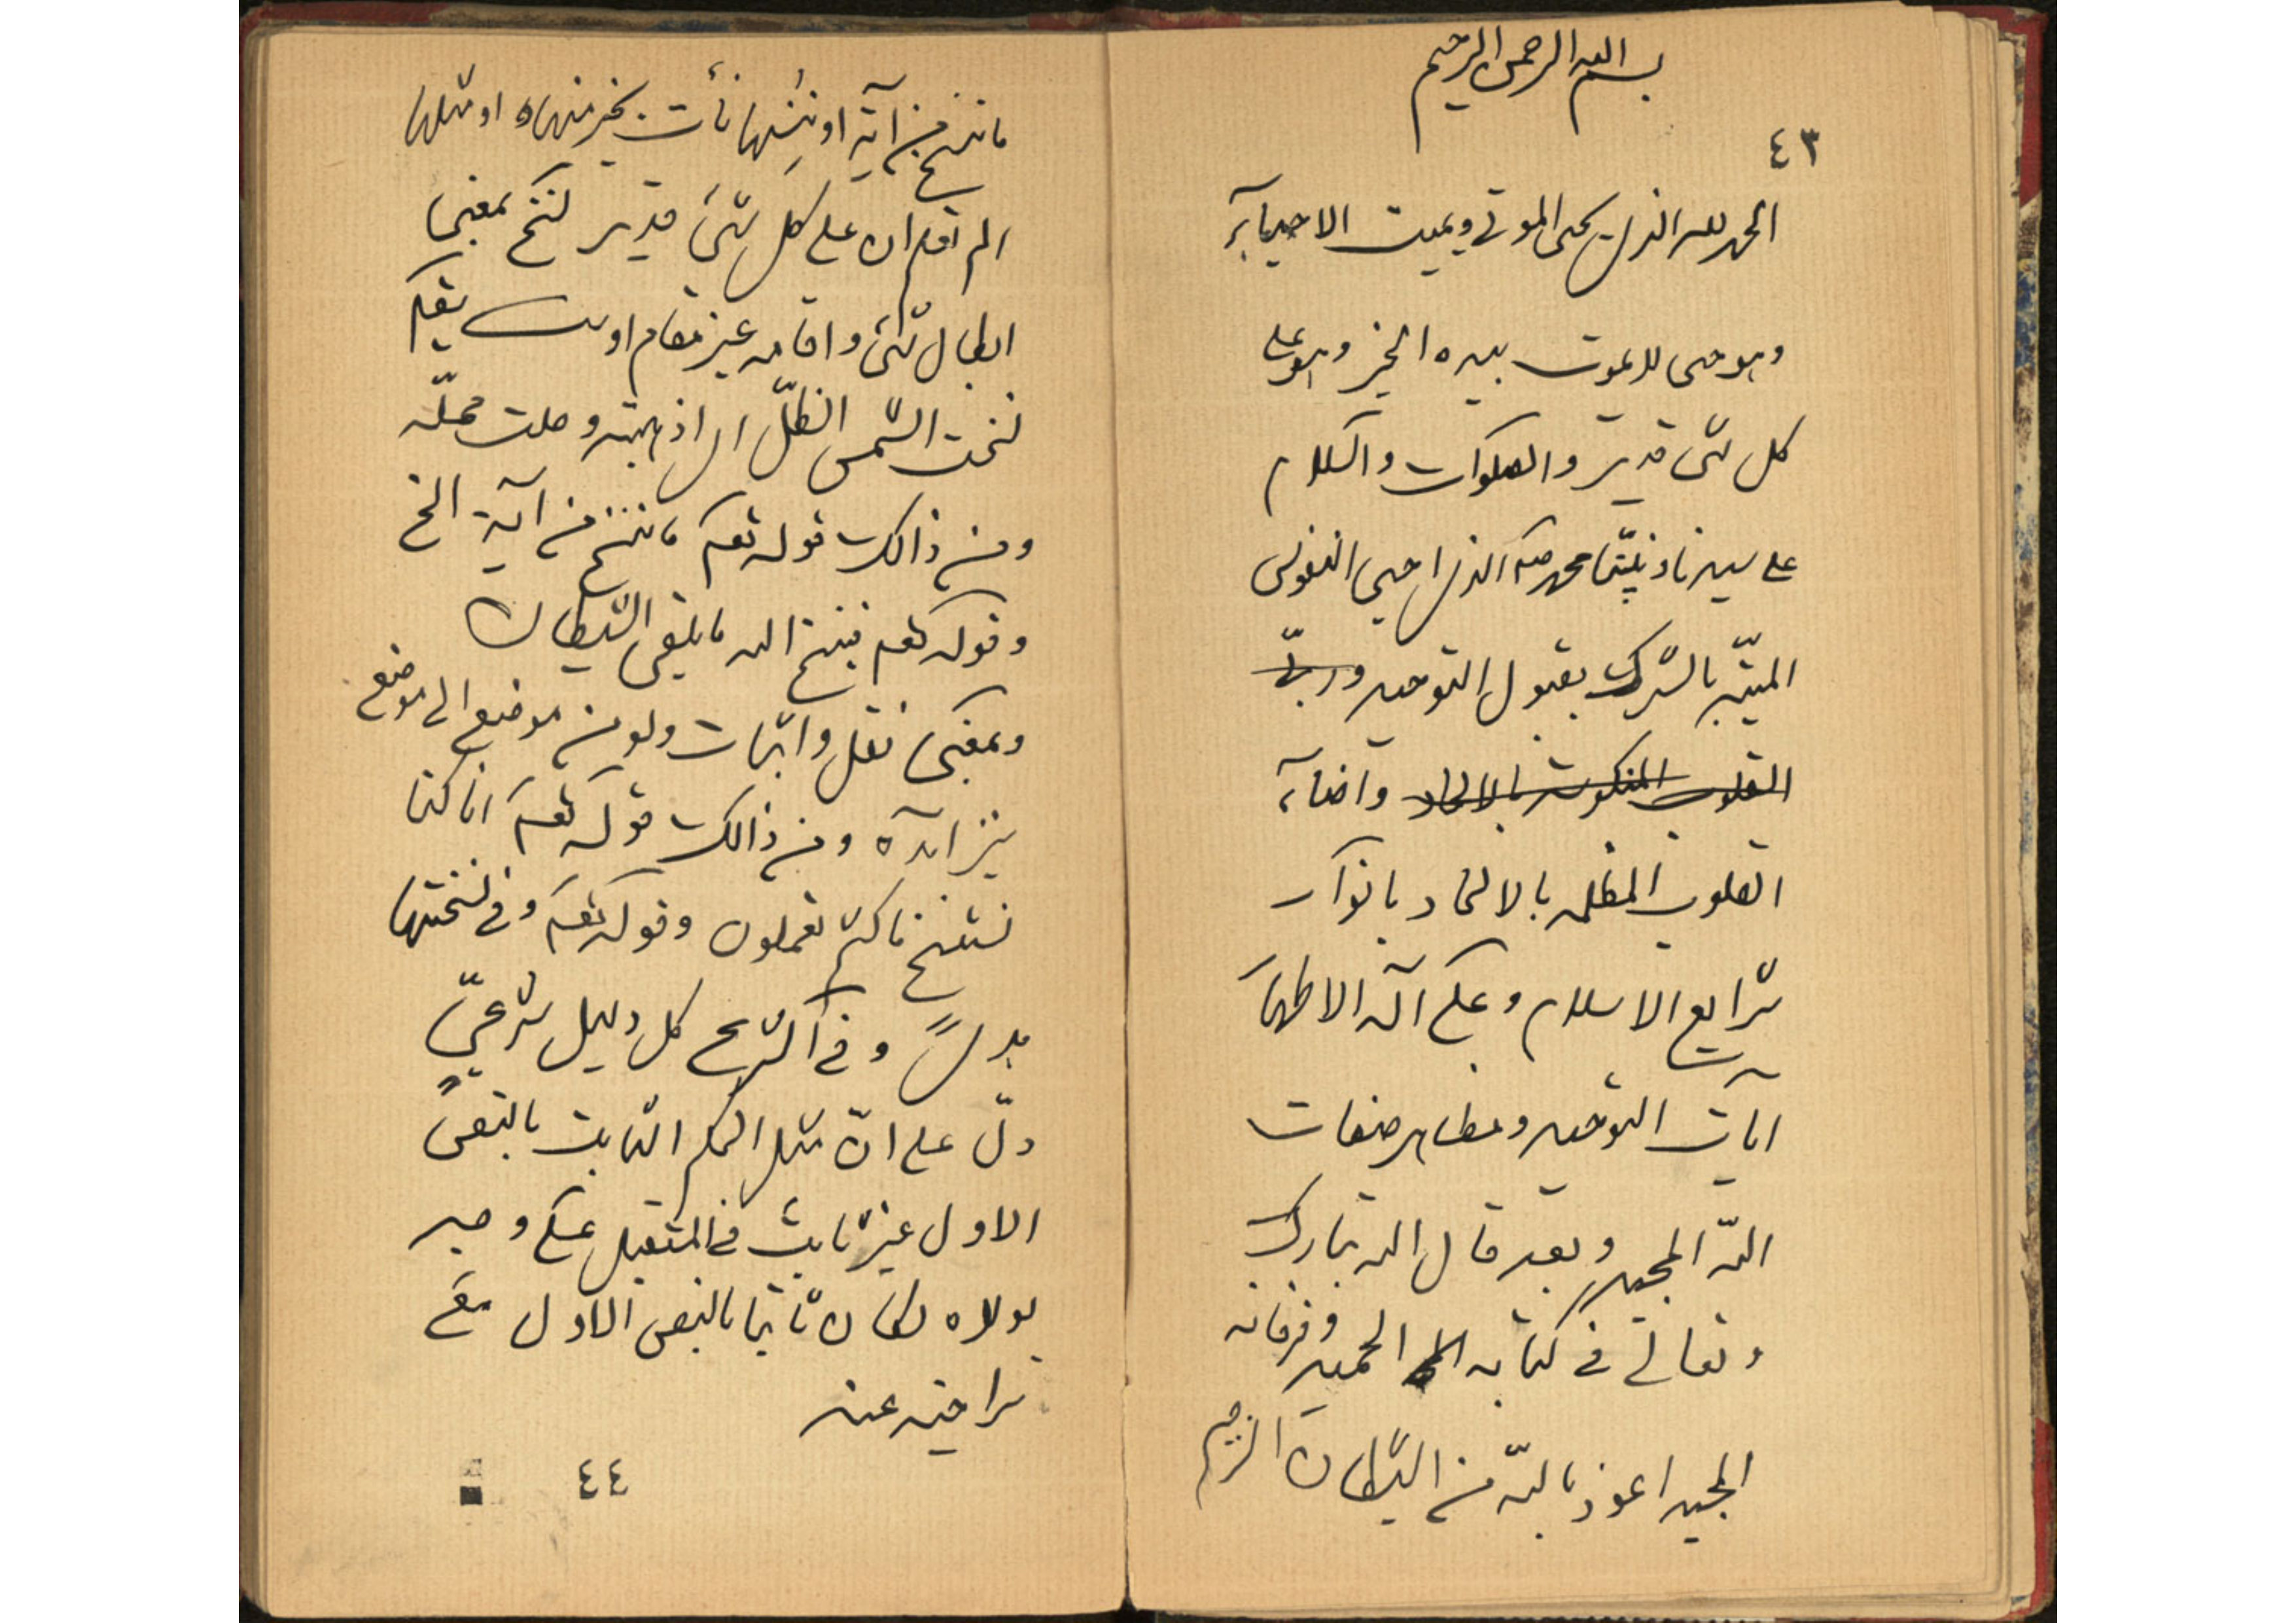 بسم الله الرحمن الرحيم
٤٣
الحمد لله الذی یحیی الموتی و یمیت الاحیآء
وهو حی لا یموت بیده الخیر وهو علی
كل شئ قدیر و الصلوات و السلام
علی سیدنا و نبیّنا محمد صلم الذی احیی النفوس
المیّته بالشرك بقبول التوحید و ربّی
القلوب المنكوسة بالالحاد واضآء
القلوب المظلمه بالالحاد بانوار
شرایع الاسلام و علی آله الاطهار
آیات التوحید و مظاهر صفات
اللّه المجید و بعد قال الله تبارك
و تعالی فی كتابه الحمید و فرقانه
المجید اعوذ باللّه من الشیطان الرجیم
ما ننسخ من آیة او ننسها نأت بخیر منها او مثلها
الم تعلم ان علی كل شئ قدیر نسخ بمعنی
ابطال شئ و اقامه غیر مقام اوست یقال
نسخت الشّمس الظلّ ای اذهبته و حلت محلّه
ومن ذالك قوله تعم ما ننسخ من آیة الخ
و قوله تعم فینسخ الله ما یلقی الشّیطان
و بمعنی نقل و اثبات ولو من موضع الی موضع
نیز آمده و من ذالك قوله تعم انا كنا
نستنسخ ما كنتم تعملون و قوله تعم و فی نسختها
هدیً و فی الشرع كل دلیل شرعیّ
دلّ علی انّ مثل الحكم الثابت بالنص
الاول غیر ثابت فی المستقبل علی وجه
لولاه لكان ثابتا بالنص الاول مع
تراخیه عنه
٤٤